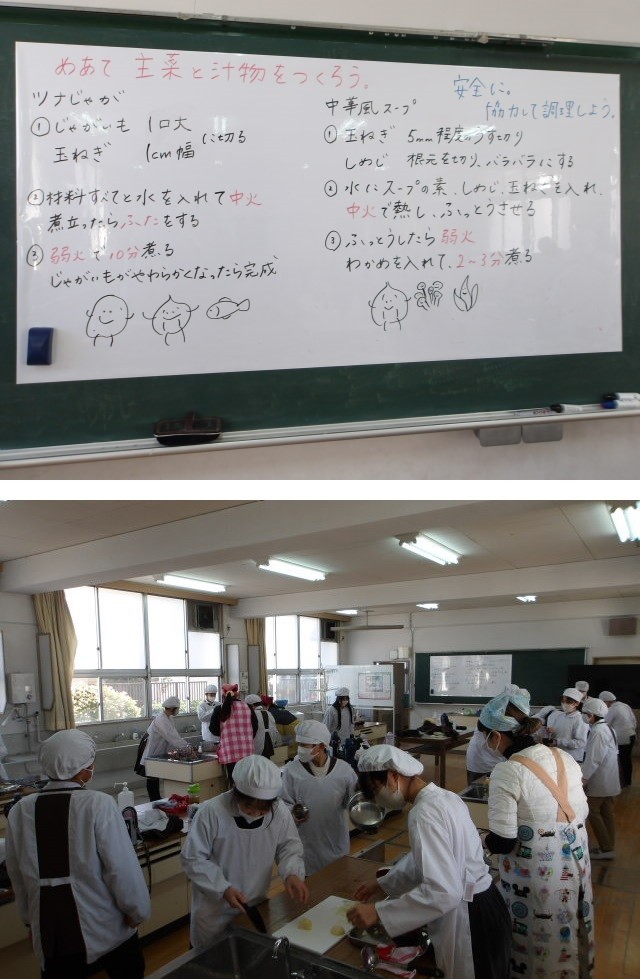 めあて 主菜と汁物をつくろう。
安全に。
協力して調理しよう。
ツナじゃが
①じゃがいも 1口大
玉ねぎ 1cm幅 に切る
②材料すべてと水を入れて中火
煮立ったらふたをする
③弱火で10分煮る
じゃがいもがやわらかくなったら完成
中華風スープ
①玉ねぎ 5mm程度のうす切り
しめじ 根元を切り、バラバラにする
②水にスープの素、しめじ、玉ねぎを入れ、
中火で熱し、ふっとうさせる
③ふっとうしたら弱火
わかめを入れて、2~3分煮る